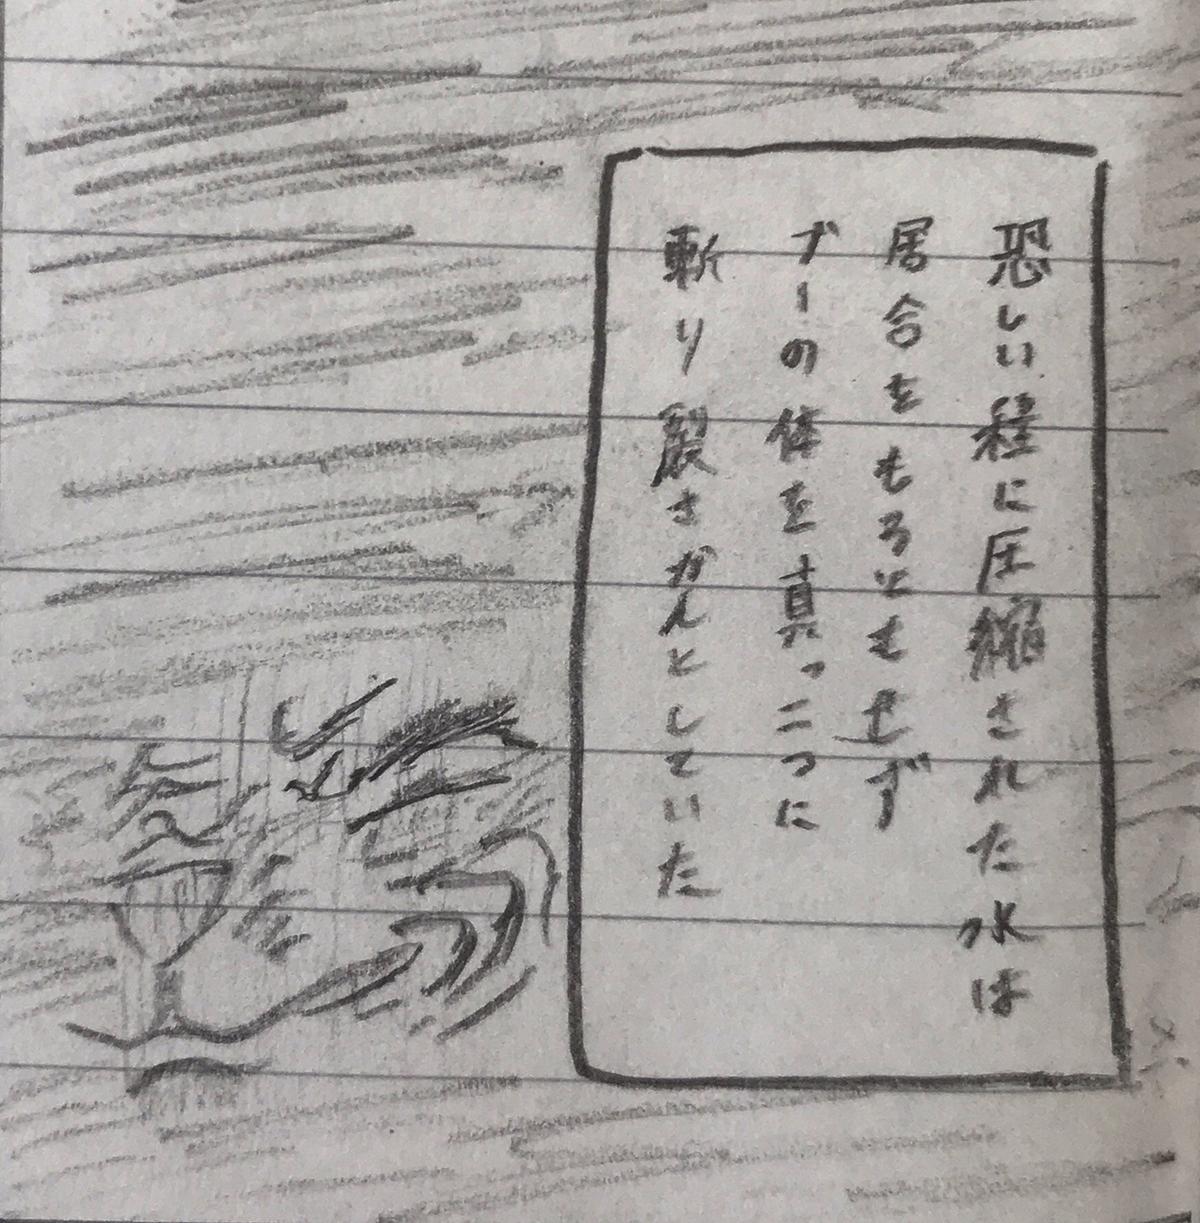 恐しい程に圧縮された水は
居合をもろともせず
ブーの体を真っ二つに
斬り殺さかんとしていた